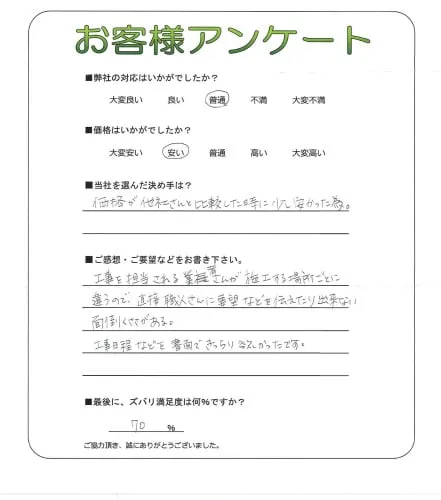 お客様アンケート
■弊社の対応はいかがでしたか?
大変良い 良い 普通 不満 大変不満
■価格はいかがでしたか?
大変安い 安い 普通 高い 大変高い
■当社を選んだ決め手は?
価格が他社さんと比較した時に少し安かった為。
■ご感想・ご要望などをお書き下さい。
工事を担当される業者さんが施工する場所ごとに
違うので、直接職人さんに要望などを伝えたり出来ない
面倒くささがある。
工事日程などを書面できっちり欲しかったです。
■最後に、ズバリ満足度は何%ですか?
70 %
ご協力頂き、誠にありがとうございました。